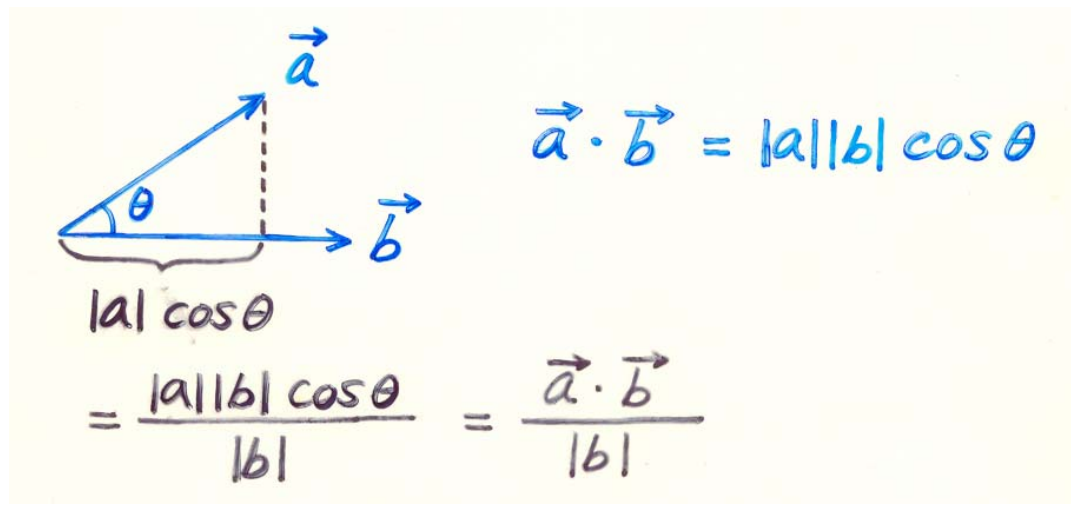 a⃗
a⃗ · b⃗ = |a||b| cos θ
θ
b⃗
|a| cos θ
= |a||b| cos θ / |b| = a⃗ · b⃗ / |b|